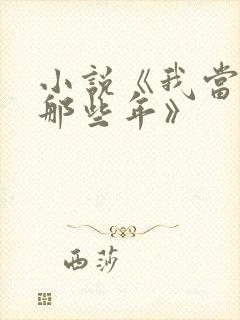 小說《我當
那些年》
西莎